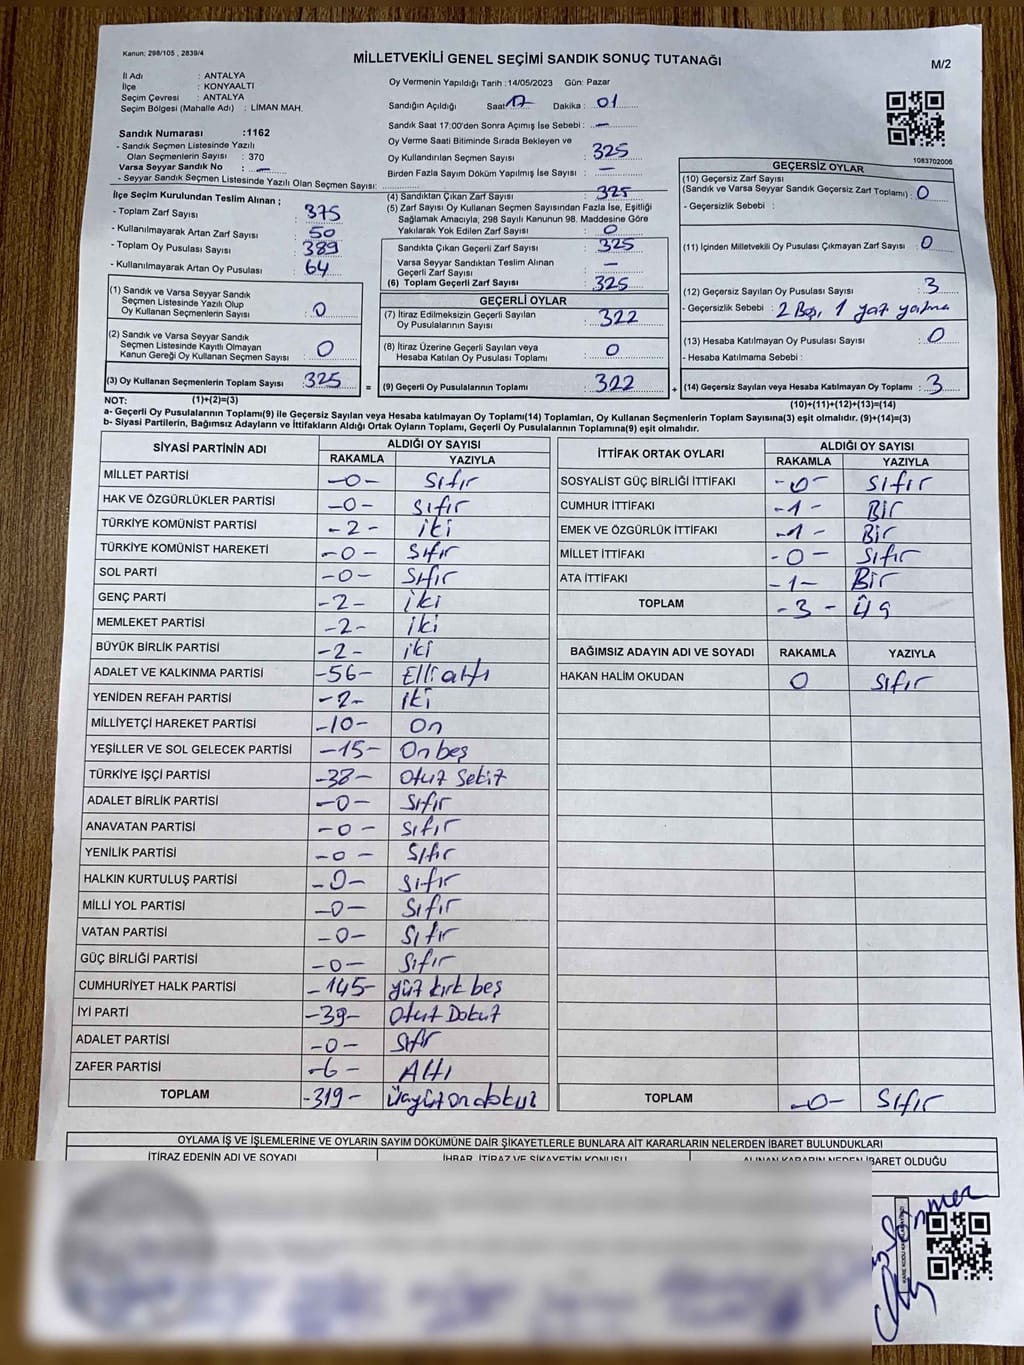 Kanun: 298/105 , 2839/4
MİLLETVEKİLİ GENEL SEÇİMİ SANDIK SONUÇ TUTANAĞI
M/2
İl Adı : ANTALYA
İlçe : KONYAALTI
Seçim Çevresi : ANTALYA
Seçim Bölgesi (Mahalle Adı) : LIMAN MAH.
Oy Vermenin Yapıldığı Tarih :14/05/2023 Gün: Pazar
Sandığın Açıldığı Saat: 17 Dakika : 01
Sandık Saat 17:00'den Sonra Açımış İse Sebebi : —
Oy Verme Saati Bitiminde Sırada Bekleyen ve
Oy Kullandırılan Seçmen Sayısı : 325
Birden Fazla Sayım Döküm Yapılmış İse Sayısı : —
1083702006
Sandık Numarası :1162
- Sandık Seçmen Listesinde Yazılı
Olan Seçmenlerin Sayısı : 370
Varsa Seyyar Sandık No : —
- Seyyar Sandık Seçmen Listesinde Yazılı Olan Seçmen Sayısı:
İlçe Seçim Kurulundan Teslim Alınan ;
- Toplam Zarf Sayısı : 375
- Kullanılmayarak Artan Zarf Sayısı : 50
- Toplam Oy Pusulası Sayısı : 389
- Kullanılmayarak Artan Oy Pusulası : 64
(1) Sandık ve Varsa Seyyar Sandık
Seçmen Listesinde Yazılı Olup
Oy Kullanan Seçmenlerin Sayısı : 0
(2) Sandık ve Varsa Seyyar Sandık
Seçmen Listesinde Kayıtlı Olmayan
Kanun Gereği Oy Kullanan Seçmen Sayısı : 0
(3) Oy Kullanan Seçmenlerin Toplam Sayısı : 325
(1)+(2)=(3)
(4) Sandıktan Çıkan Zarf Sayısı : 325
(5) Zarf Sayısı Oy Kullanan Seçmen Sayısından Fazla İse, Eşitliği
Sağlamak Amacıyla; 298 Sayılı Kanunun 98. Maddesine Göre
Yakılarak Yok Edilen Zarf Sayısı : 0
Sandıkta Çıkan Geçerli Zarf Sayısı : 325
Varsa Seyyar Sandıktan Teslim Alınan
Geçerli Zarf Sayısı : —
(6) Toplam Geçerli Zarf Sayısı : 325
GEÇERLİ OYLAR
(7) İtiraz Edilmeksizin Geçerli Sayılan
Oy Pusulalarının Sayısı : 322
(8) İtiraz Üzerine Geçerli Sayılan veya
Hesaba Katılan Oy Pusulası Toplamı : 0
= (9) Geçerli Oy Pusulalarının Toplamı : 322
GEÇERSİZ OYLAR
(10) Geçersiz Zarf Sayısı
(Sandık ve Varsa Seyyar Sandık Geçersiz Zarf Toplamı) : 0
- Geçersizlik Sebebi :
(11) İçinden Milletvekili Oy Pusulası Çıkmayan Zarf Sayısı : 0
(12) Geçersiz Sayılan Oy Pusulası Sayısı : 3
- Geçersizlik Sebebi : 2 Boş, 1
(13) Hesaba Katılmayan Oy Pusulası Sayısı : 0
- Hesaba Katılmama Sebebi :
+ (14) Geçersiz Sayılan veya Hesaba Katılmayan Oy Pusulası Toplamı : 3
(10)+(11)+(12)+(13)=(14)
NOT:
a- Geçerli Oy Pusulalarının Toplamı(9) ile Geçersiz Sayılan veya Hesaba katılmayan Oy Toplamı(14) Toplamları, Oy Kullanan Seçmenlerin Toplam Sayısına(3) eşit olmalıdır. (9)+(14)=(3)
b- Siyasi Partilerin, Bağımsız Adayların ve İttifakların Aldığı Ortak Oyların Toplamı, Geçerli Oy Pusulalarının Toplamına(9) eşit olmalıdır.
SİYASİ PARTİNİN ADI ALDIĞI OY SAYISI
RAKAMLA YAZIYLA
MİLLET PARTİSİ -0- Sıfır
HAK VE ÖZGÜRLÜKLER PARTİSİ -0- Sıfır
TÜRKİYE KOMÜNİST PARTİSİ -2- iki
TÜRKİYE KOMÜNİST HAREKETİ -0- Sıfır
SOL PARTİ -0- Sıfır
GENÇ PARTİ -2- iki
MEMLEKET PARTİSİ -2- iki
BÜYÜK BİRLİK PARTİSİ -2- iki
ADALET VE KALKINMA PARTİSİ -56- Elli altı
YENİDEN REFAH PARTİSİ -2- iki
MİLLİYETÇİ HAREKET PARTİSİ -10- On
YEŞİLLER VE SOL GELECEK PARTİSİ -15- On beş
TÜRKİYE İŞÇİ PARTİSİ -38- Otuz Sekiz
ADALET BİRLİK PARTİSİ -0- Sıfır
ANAVATAN PARTİSİ -0- Sıfır
YENİLİK PARTİSİ -0- Sıfır
HALKIN KURTULUŞ PARTİSİ -0- Sıfır
MİLLİ YOL PARTİSİ -0- Sıfır
VATAN PARTİSİ -0- Sıfır
GÜÇ BİRLİĞİ PARTİSİ -0- Sıfır
CUMHURİYET HALK PARTİSİ -145- yüz kırk beş
İYİ PARTİ -39- Otuz Dokuz
ADALET PARTİSİ -0- Sıfır
ZAFER PARTİSİ -6- Altı
TOPLAM -319- üçyüzondokuz
İTTİFAK ORTAK OYLARI ALDIĞI OY SAYISI
RAKAMLA YAZIYLA
SOSYALİST GÜÇ BİRLİĞİ İTTİFAKI -0- Sıfır
CUMHUR İTTİFAKI -1- Bir
EMEK VE ÖZGÜRLÜK İTTİFAKI -1- Bir
MİLLET İTTİFAKI -0- Sıfır
ATA İTTİFAKI -1- Bir
TOPLAM -3- Üç
BAĞIMSIZ ADAYIN ADI VE SOYADI RAKAMLA YAZIYLA
HAKAN HALİM OKUDAN 0 Sıfır
TOPLAM -0- Sıfır
OYLAMA İŞ VE İŞLEMLERİNE VE OYLARIN SAYIM DÖKÜMÜNE DAİR ŞİKAYETLERLE BUNLARA AİT KARARLARIN NELERDEN İBARET BULUNDUKLARI
İTİRAZ EDENİN ADI VE SOYADI İHBAR, İTİRAZ VE ŞİKAYETİN KONUSU ALINAN KARARIN NEDEN İBARET OLDUĞU